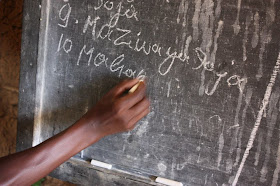 Soja
9. Maziwa ya Soja
10 Mahar